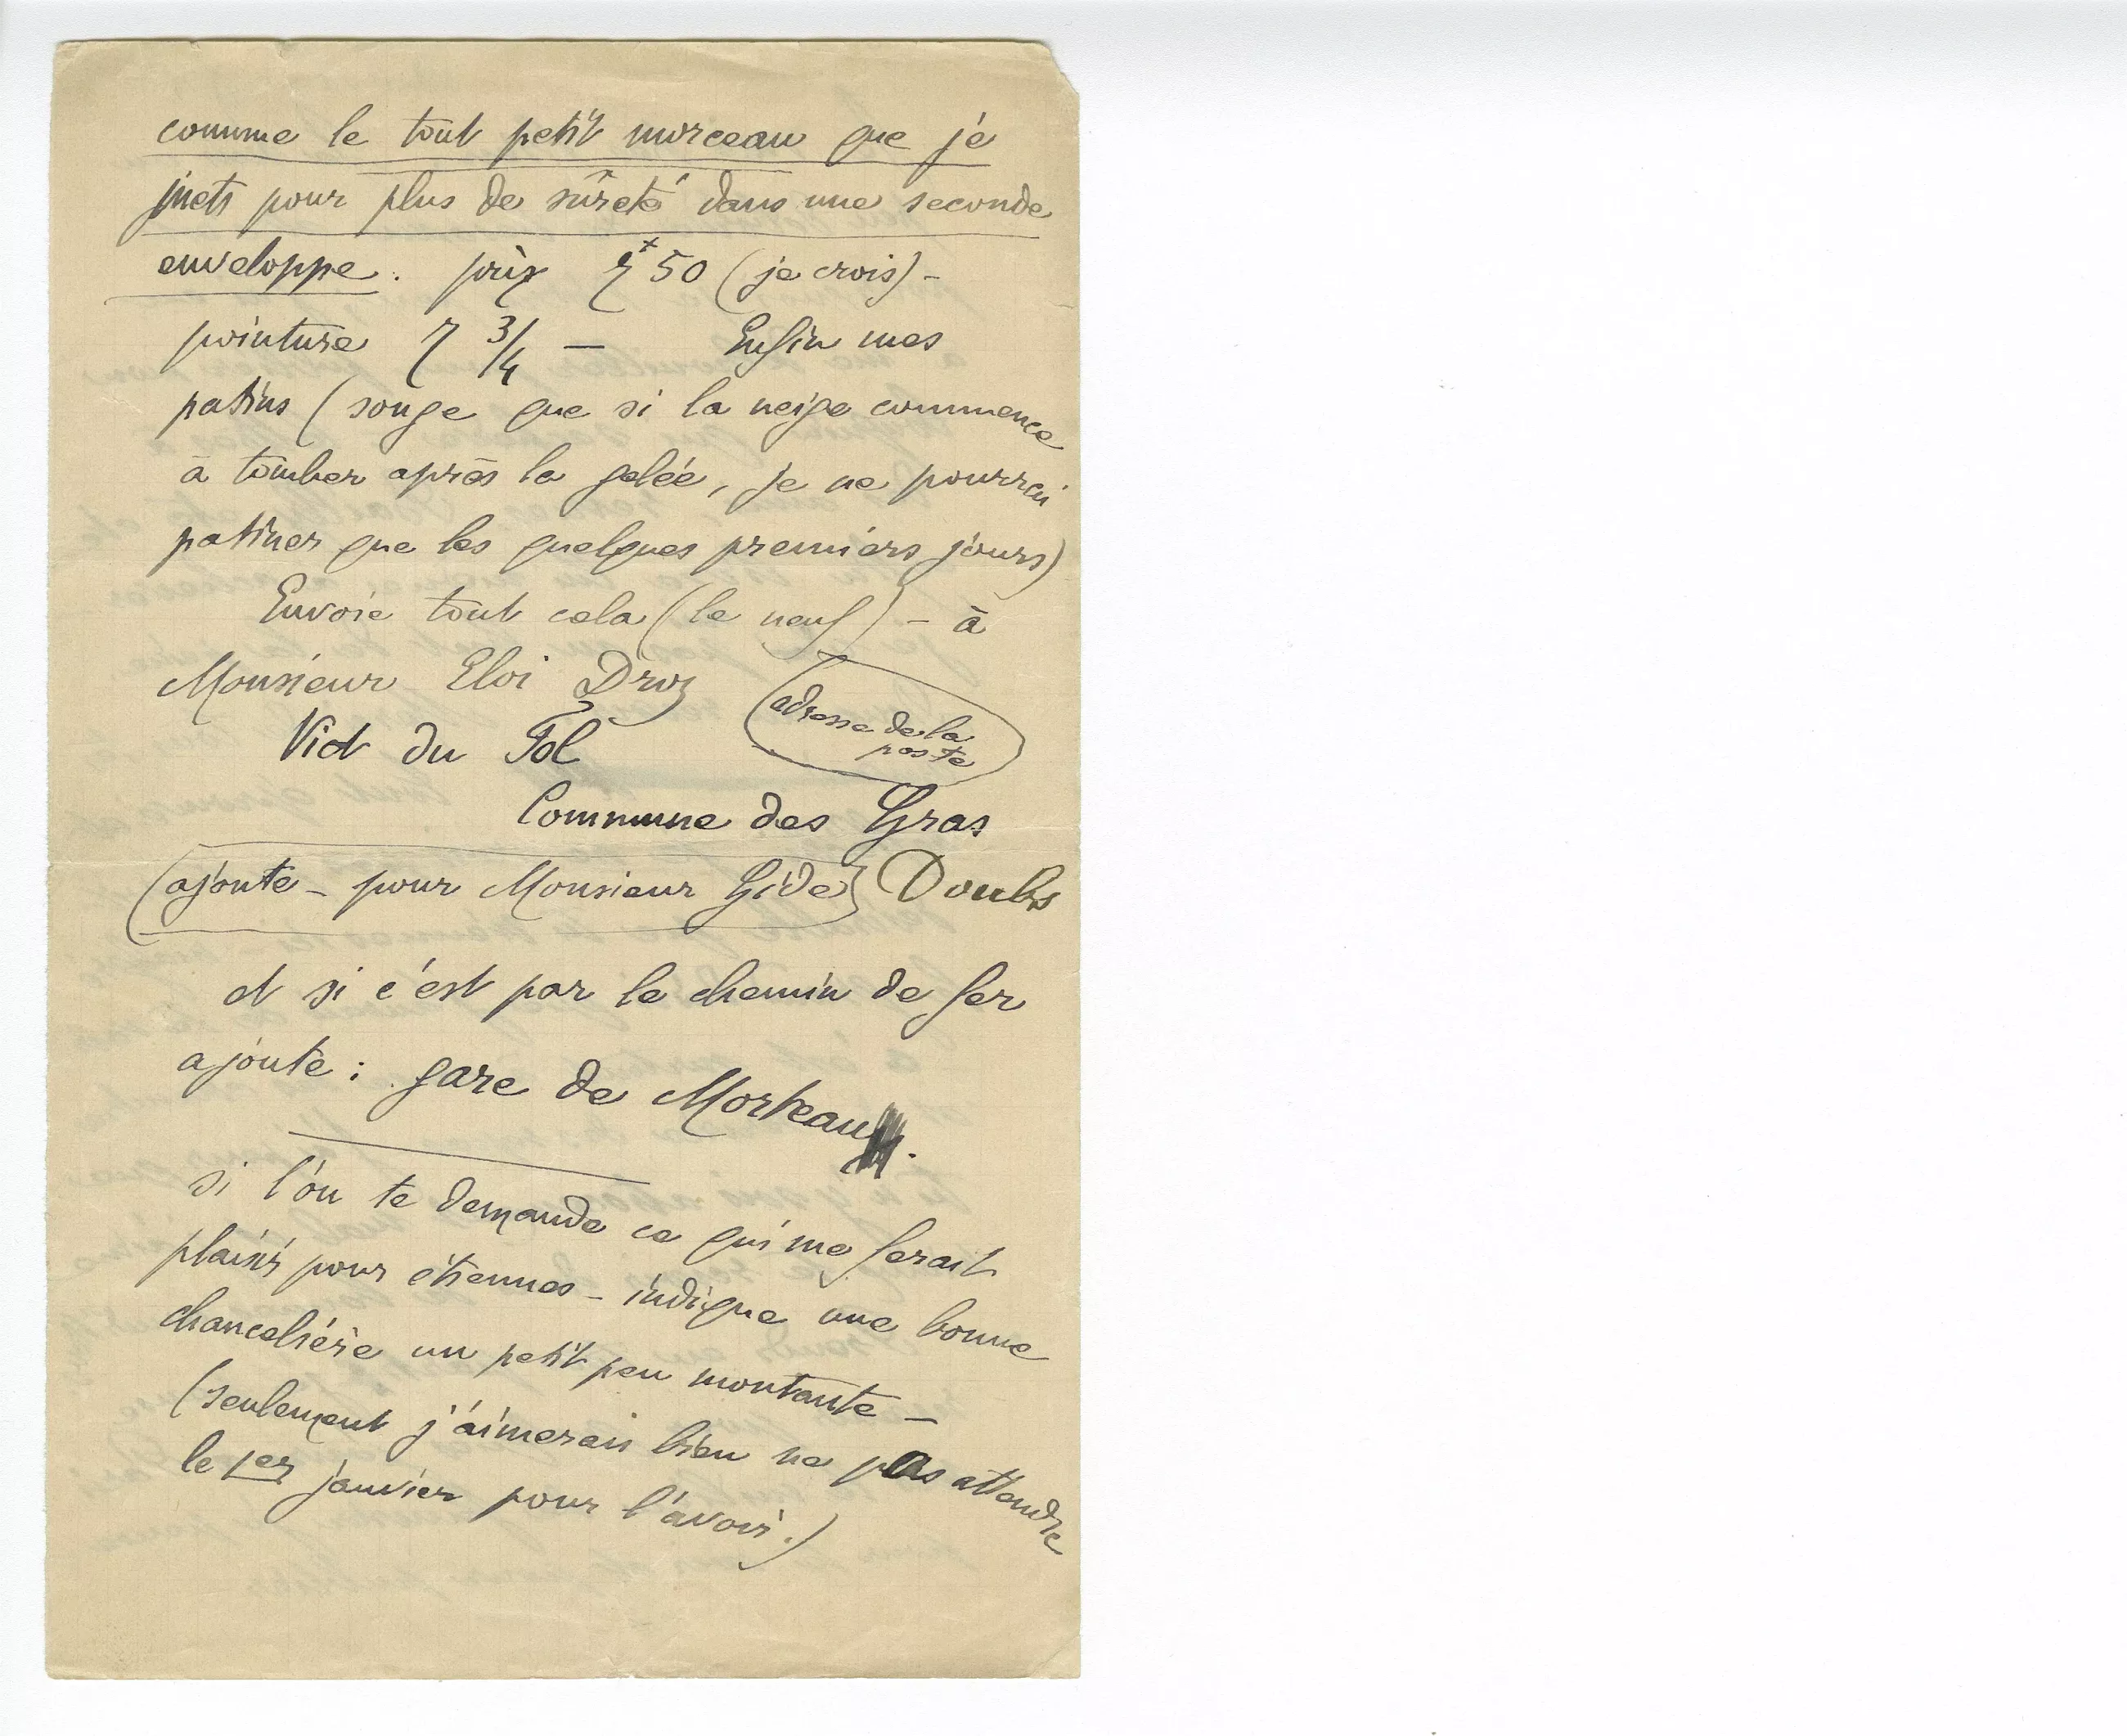 comme le tout petit morceau que je
mets pour plus de sûreté dans une seconde
enveloppe. prix 7 50 (je crois) –
pointure 7 3/4 – Enfin mes
patins (songe que si la neige commence
à tomber après la gelée, je ne pourrai
patiner que les quelques premiers jours)
Envoie tout cela (le neuf) – à
Monsieur Eloi Droz
adresse de la
poste
Vict du Fol
Commune des Gras
(ajoute – pour Monsieur Gide) Doubs
et si c'est par le chemin de fer
ajoute : gare de Morteau.
si l'on te demande ce qui me ferait
plaisir pour étrennes – indique une bonne
chancelière un petit peu montante –
(seulement j'aimerais bien ne pas attendre
le 1er janvier pour l'avoir.)